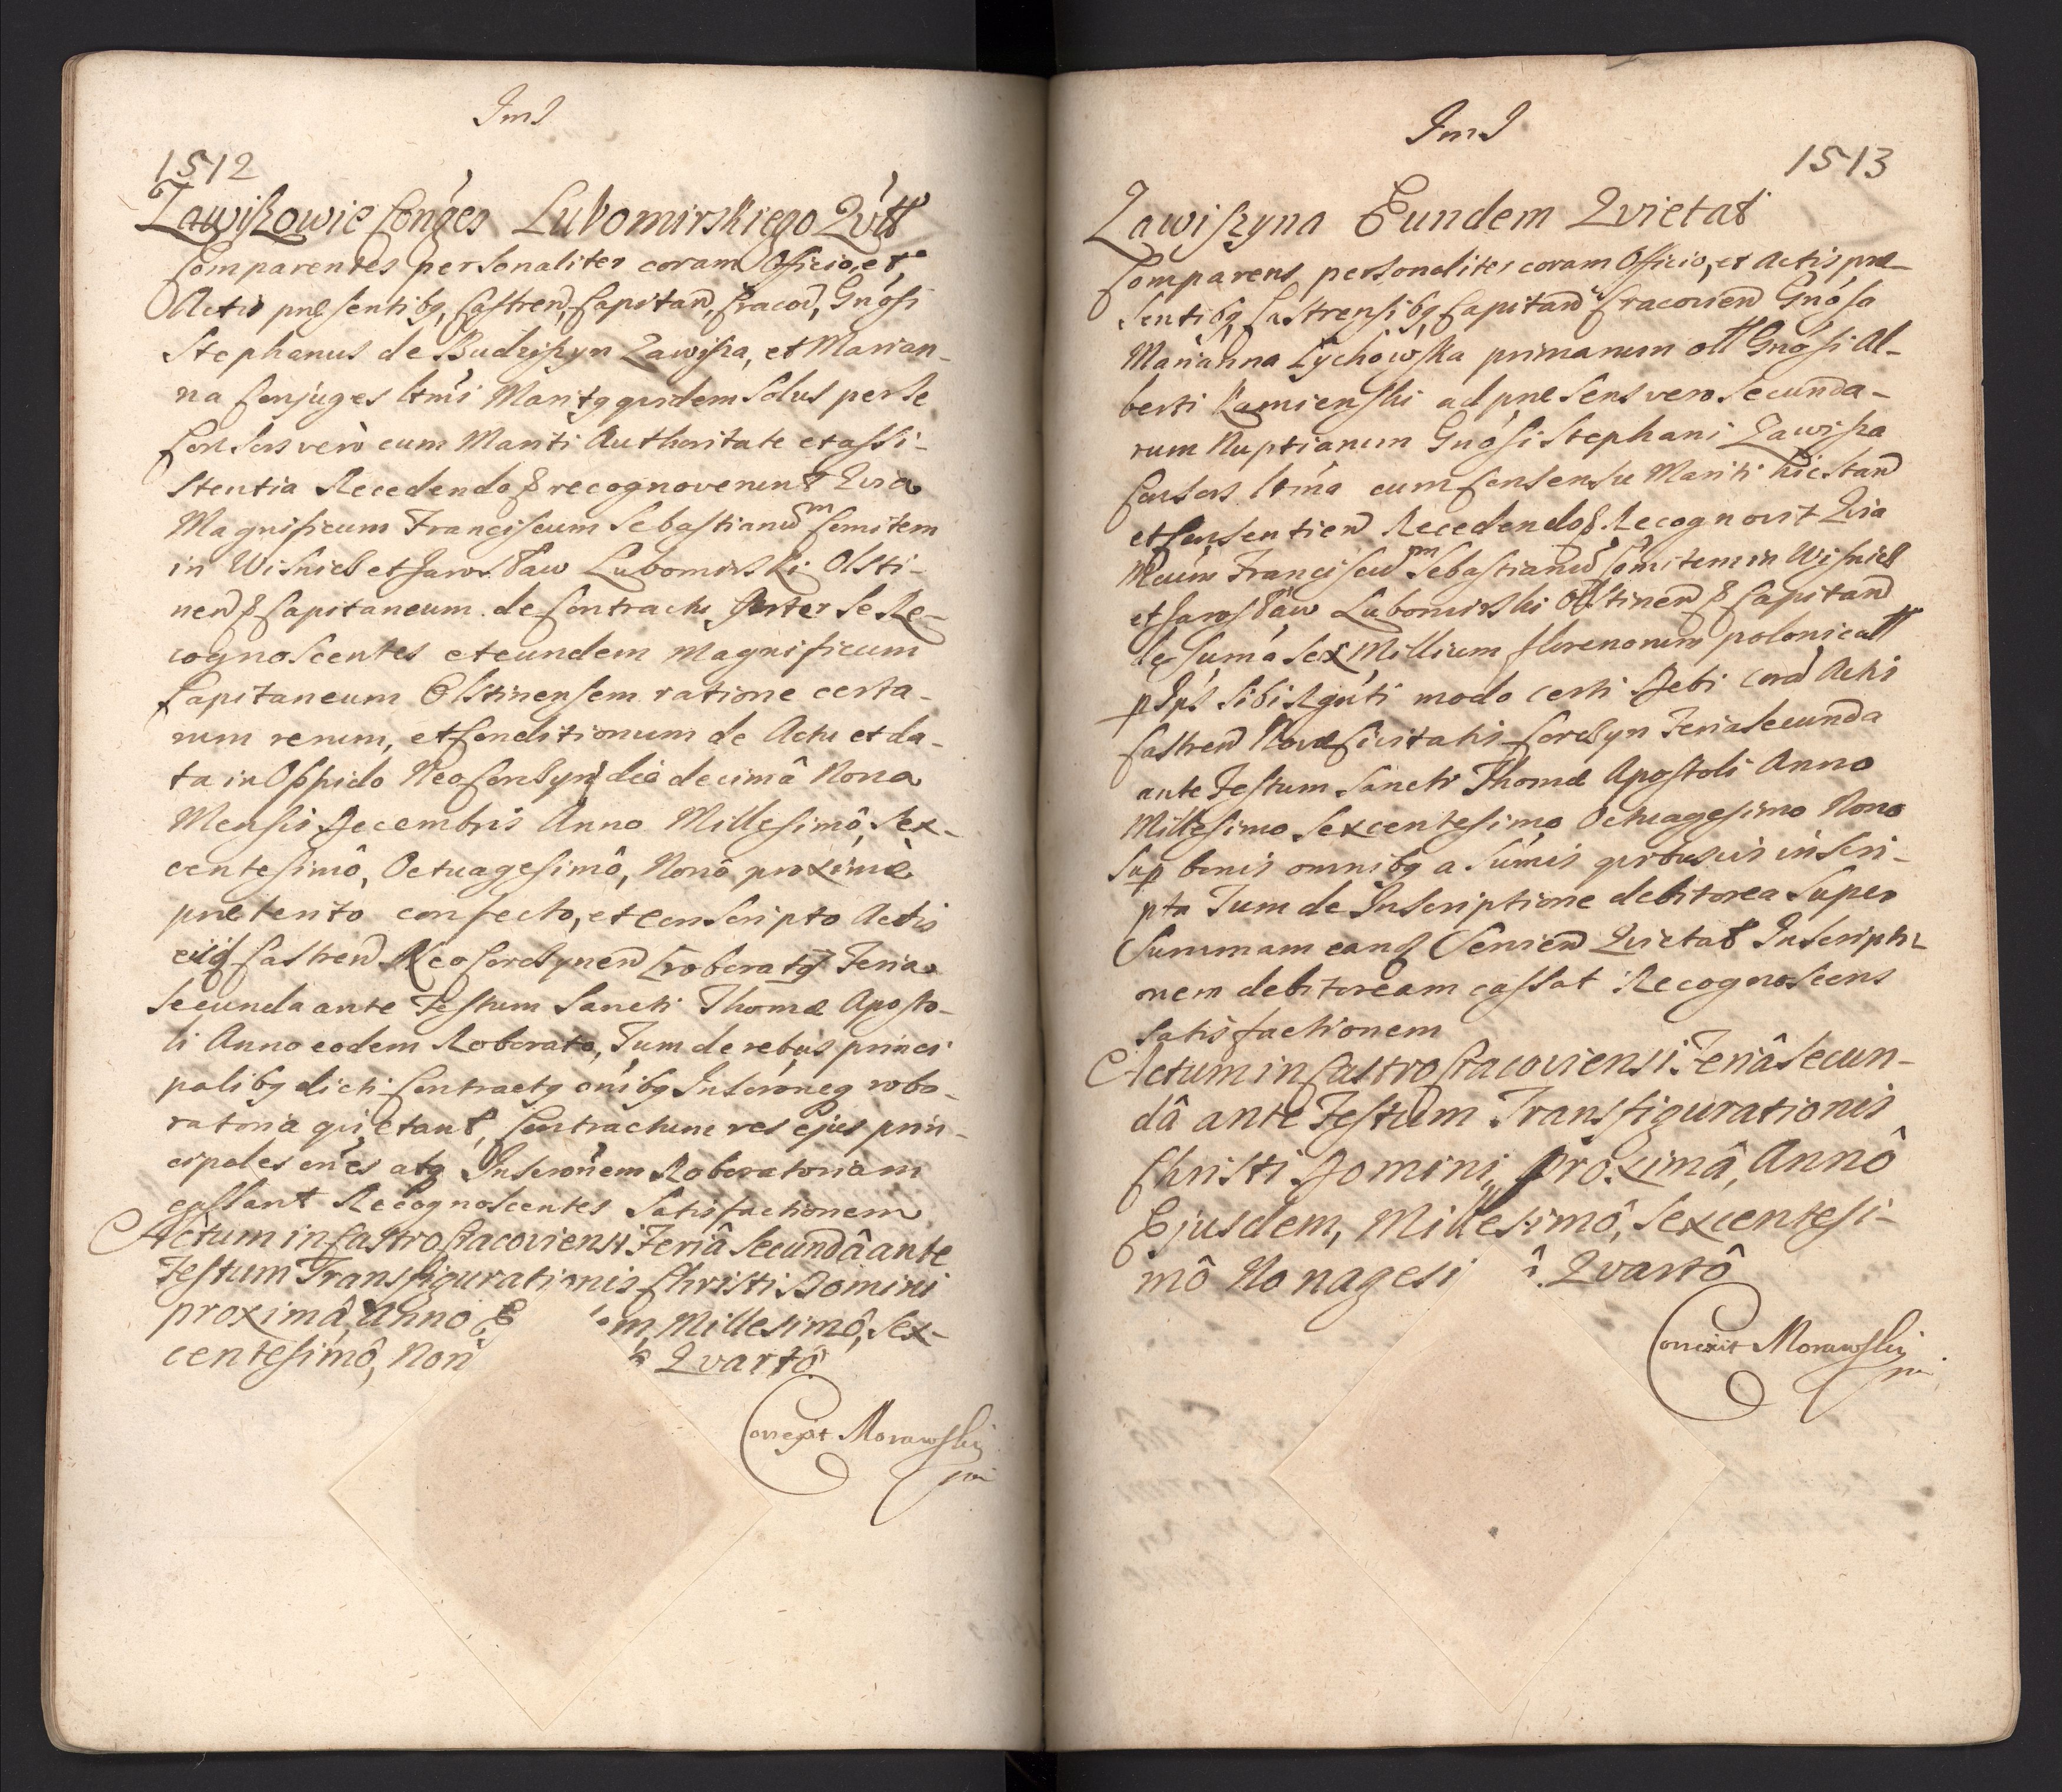 ImJ
1512
Zawiszowie Conges Lubomirskiego Qvitt
Comparentes personaliter coram Officio, et
Actis præsentibq, Castren, Capitan, Cracov, Gnosi
Stephanus de Budziszyn Zawisza, et Marian-
na Conjuges ltmi Maritq quidem solus per se
Consors vero cum Mariti Authoritate et assi-
stentia Recedendo & recognoverunt Quia
Magnificum Franciscum Sebastianum Comitem
in Wisnicz et Jarosław Lubomirski Olsti-
nen & Capitaneum de Contractu Inter se Re-
cognoscentes et eundem Magnificum
Capitaneum Olstinensem ratione certa-
rum rerum, et Conditionum de Actu et da-
ta in Oppido Neo Corczyn die decimâ Nona
Mensis Decembris Anno Millesimô, Sex-
centesimô, Octuagesimô, Nonô proximè
præterito confecto, et conscripto Actis
Castren Neo Corczynen Feria
secunda ante Festum Sancti Thomæ Aposto-
li Anno eodem Roborato, Tum de rebus princi
palibq dicti Contractq oñibq Inscrõneq robo-
ratoria quietant, Contractum res ejus prin-
cipales oñes atq Inscrõnem Roboratoriam
cassant Recognoscentes Satisfactionem
Actum in Castro Cracoviensi Feriâ Secundâ ante
Festum Transfigurationis Christi Domini
proximâ Anno E m, Millesimô, Sex-
centesimô, Non Qvartô
Correxit Morawski
mp
ImJ
1513
Zawiszyna Eundem Qvietat
Comparens personaliter coram Officio, et Actis præ-
sentibq Castrensibq Capitan Cracovien Gnosa
Marianna Lychowska primarum Gnosi Al-
berti Kamienski ad præsens vero secunda-
rum Nuptiarum Gnosi Stephani Zawisza
Consors ltma cum Consensu Mariti hic stan
et Consentien Recedendo & Recognovit Quia
Mcum Franciscum Sebastianum Comitem in Wisnicz
et Jarosław Lubomirski Olstinen & Capitan
de suma sex Millium florenorum polonicall
p Ips sibi modo certi Debi coram Actis
Castren Novæ Civitatis Corczyn Feria secunda
ante Festum Sancti Thomæ Apostoli Anno
Millesimo Sexcentesimo Octuagesimo Nono
sup bonis omnibq a sumis quibusvis inscri-
pta Tum de Inscriptione debitorea super
Summam eand Servien Qvietat Inscripti-
onem debitoream cassat Recognoscens
Satisfactionem
Actum in Castro Cracoviensi Feriâ Secun-
dâ ante Festum Transfigurationis
Christi Domini proximâ, Annô
Ejusdem, Millesimô, Sexcentesi-
mô Nonagesi ô Qvartô
Correxit Morawski
mp